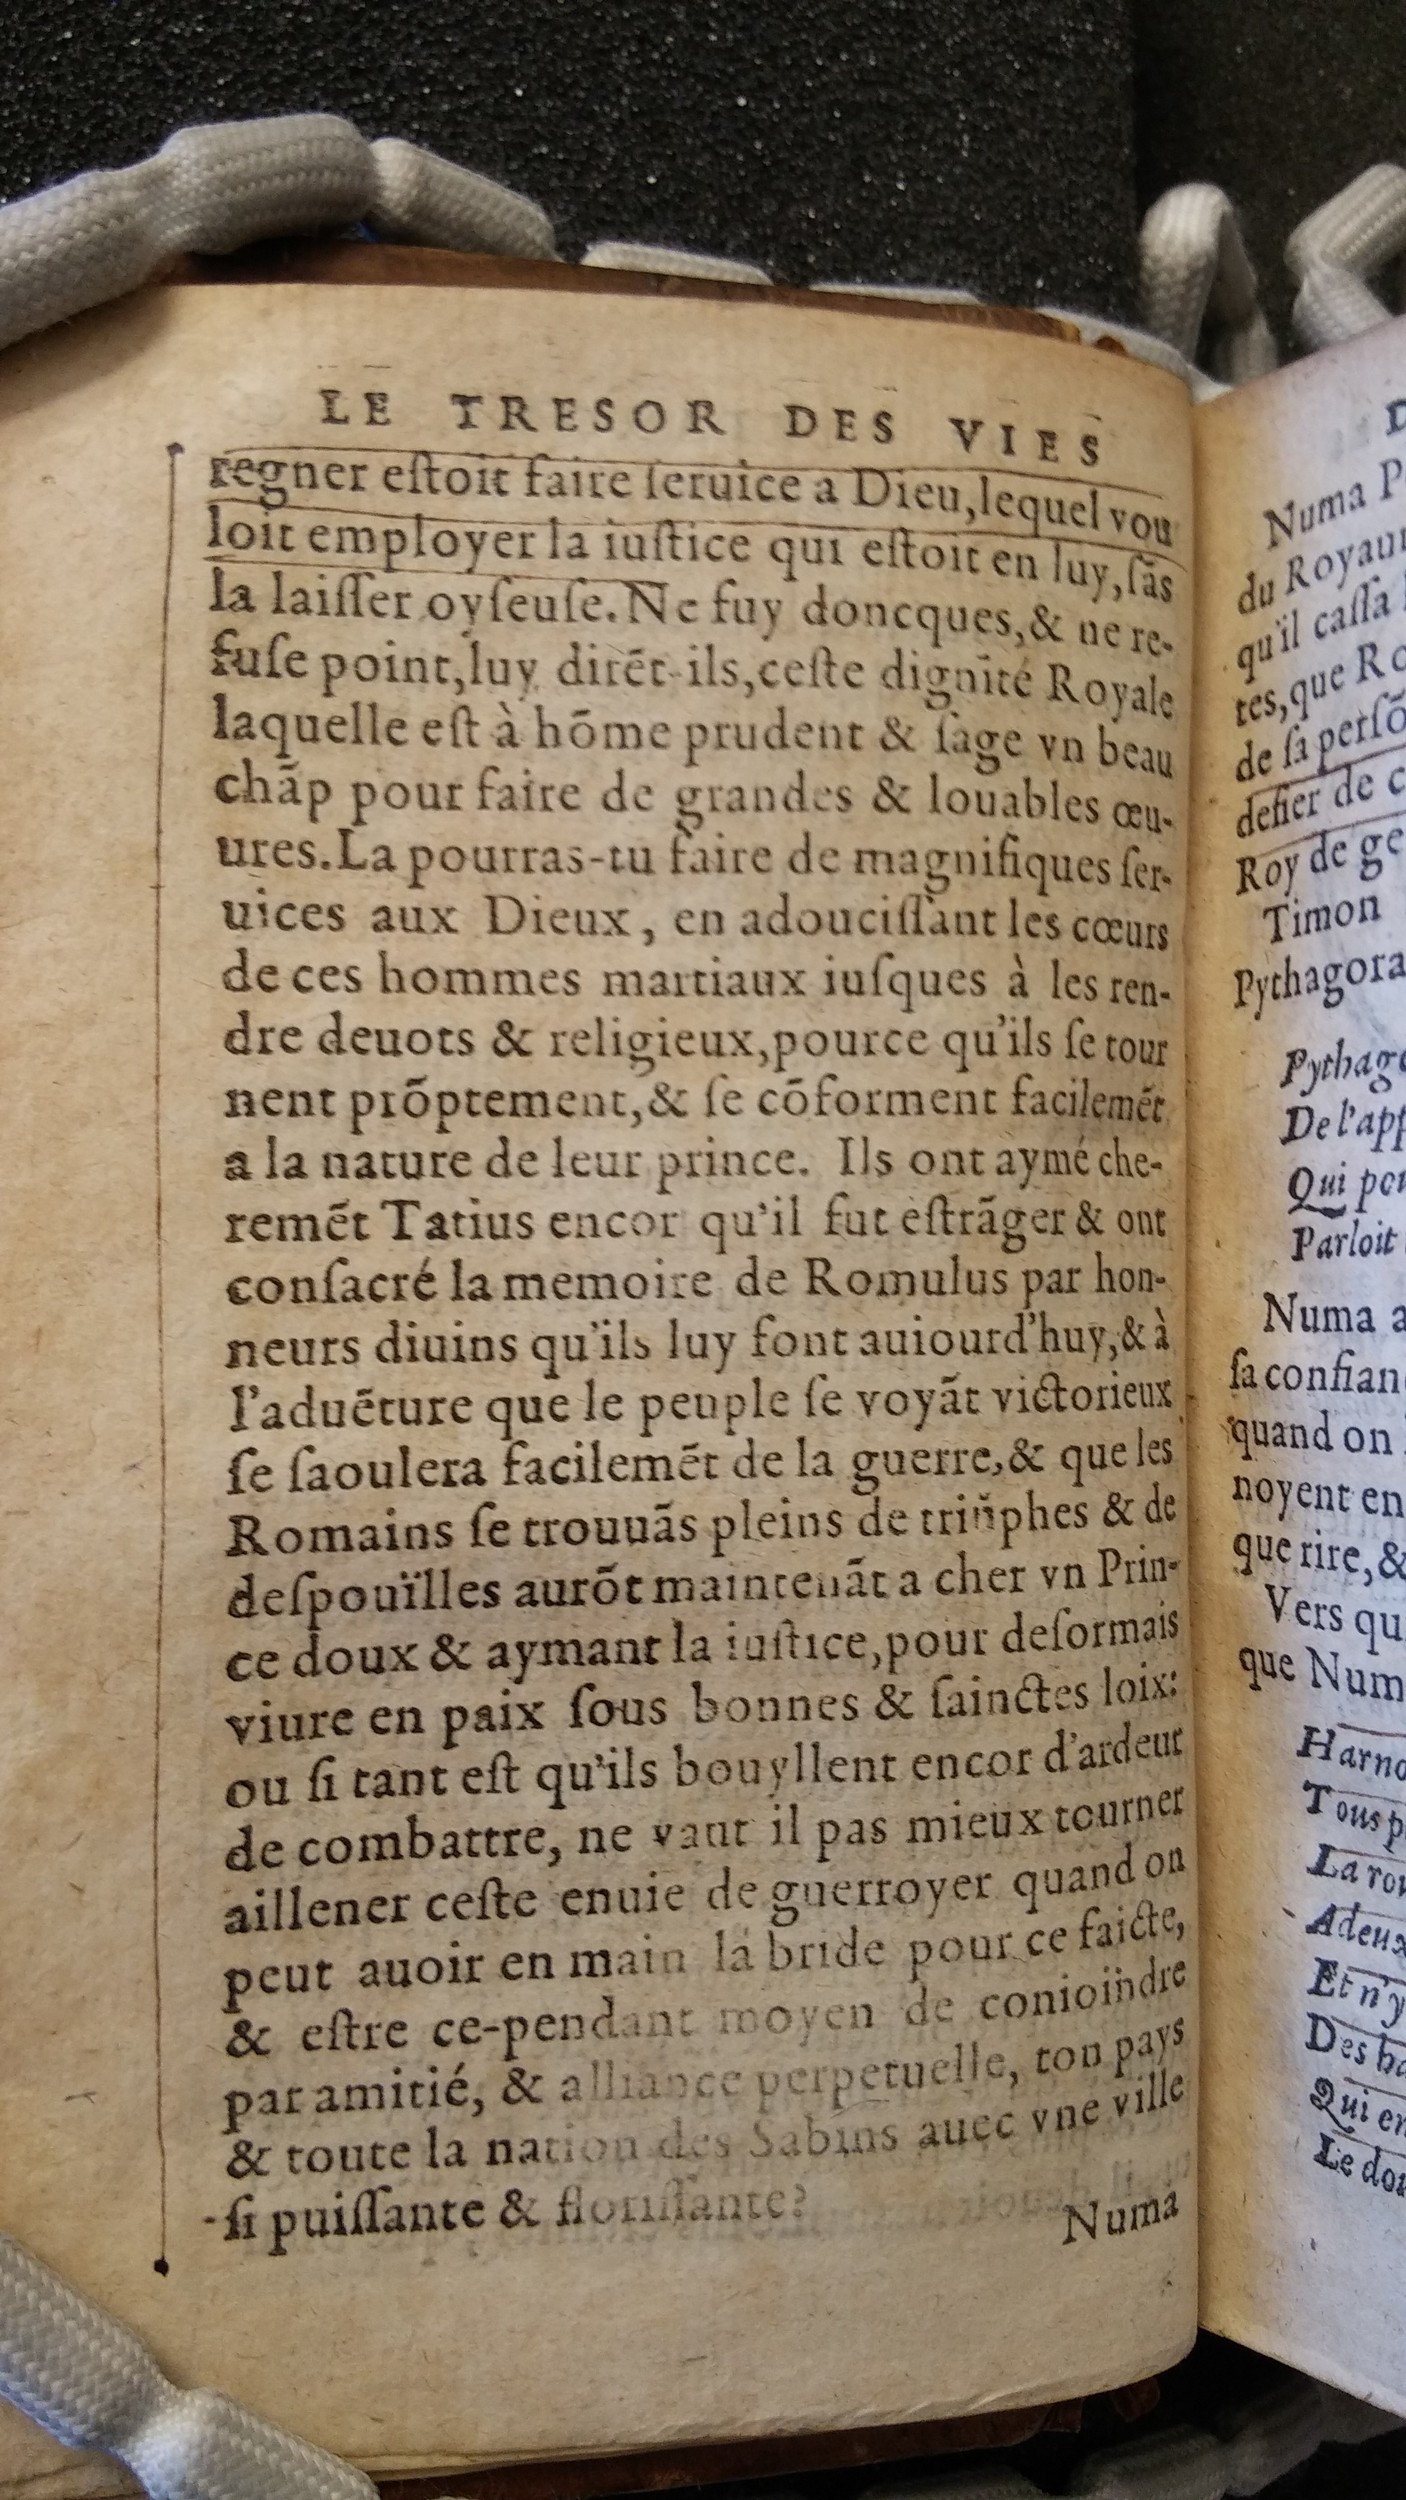 LE TRESOR DES VIES
regner eſtoit faire ſeruice a Dieu,lequel vou
loit employer la iuſtice qui eſtoit en luy,ſãs
la laiſſer oyſeuſe.Ne fuy doncques,& ne re-
fuſe point,luy dirẽt-ils,ceſte dignité Royale
laquelle eſt à hõme prudent & ſage vn beau
chãp pour faire de grandes & louables œu-
ures.La pourras-tu faire de magnifiques ſer-
uices aux Dieux, en adouciſſant les cœurs
de ces hommes martiaux iuſques à les ren-
dre deuots & religieux,pource qu'ils ſe tour
nent prõptement,& ſe cõforment facilemẽt
a la nature de leur prince. Ils ont aymé che-
remẽt Tatius encor qu'il fut eſtrãger & ont
conſacré la memoire de Romulus par hon-
neurs diuins qu'ils luy font auiourd'huy,& à
l'aduẽture que le peuple ſe voyãt victorieux
ſe ſaoulera facilemẽt de la guerre,& que les
Romains ſe trouuãs pleins de triũphes & de
deſpouïlles aurõt maintenãt a cher vn Prin-
ce doux & aymant la iuſtice,pour deſormais
viure en paix ſous bonnes & ſainctes loix:
ou ſi tant eſt qu'ils bouyllent encor d'ardeur
de combattre, ne vaut il pas mieux tourner
aillener ceſte enuie de guerroyer quand on
peut auoir en main la bride pour ce faicte,
& eſtre ce-pendant moyen de conioïndre
par amitié, & alliance perpetuelle, ton pays
& toute la nation des Sabins auec vne ville
ſi puiſſante & floriſſante?
Numa
Numa
du
qu'il caſſa
tes,que
de ſa
defier de
Roy de
Timon
Pythagora
De l'app
Qui
Parloit
Numa
ſa
quand on
noyent en
que rire,&
Vers
que Num
Harno
Tous
La
Adeux
Et n'y
Des
Qui
Le